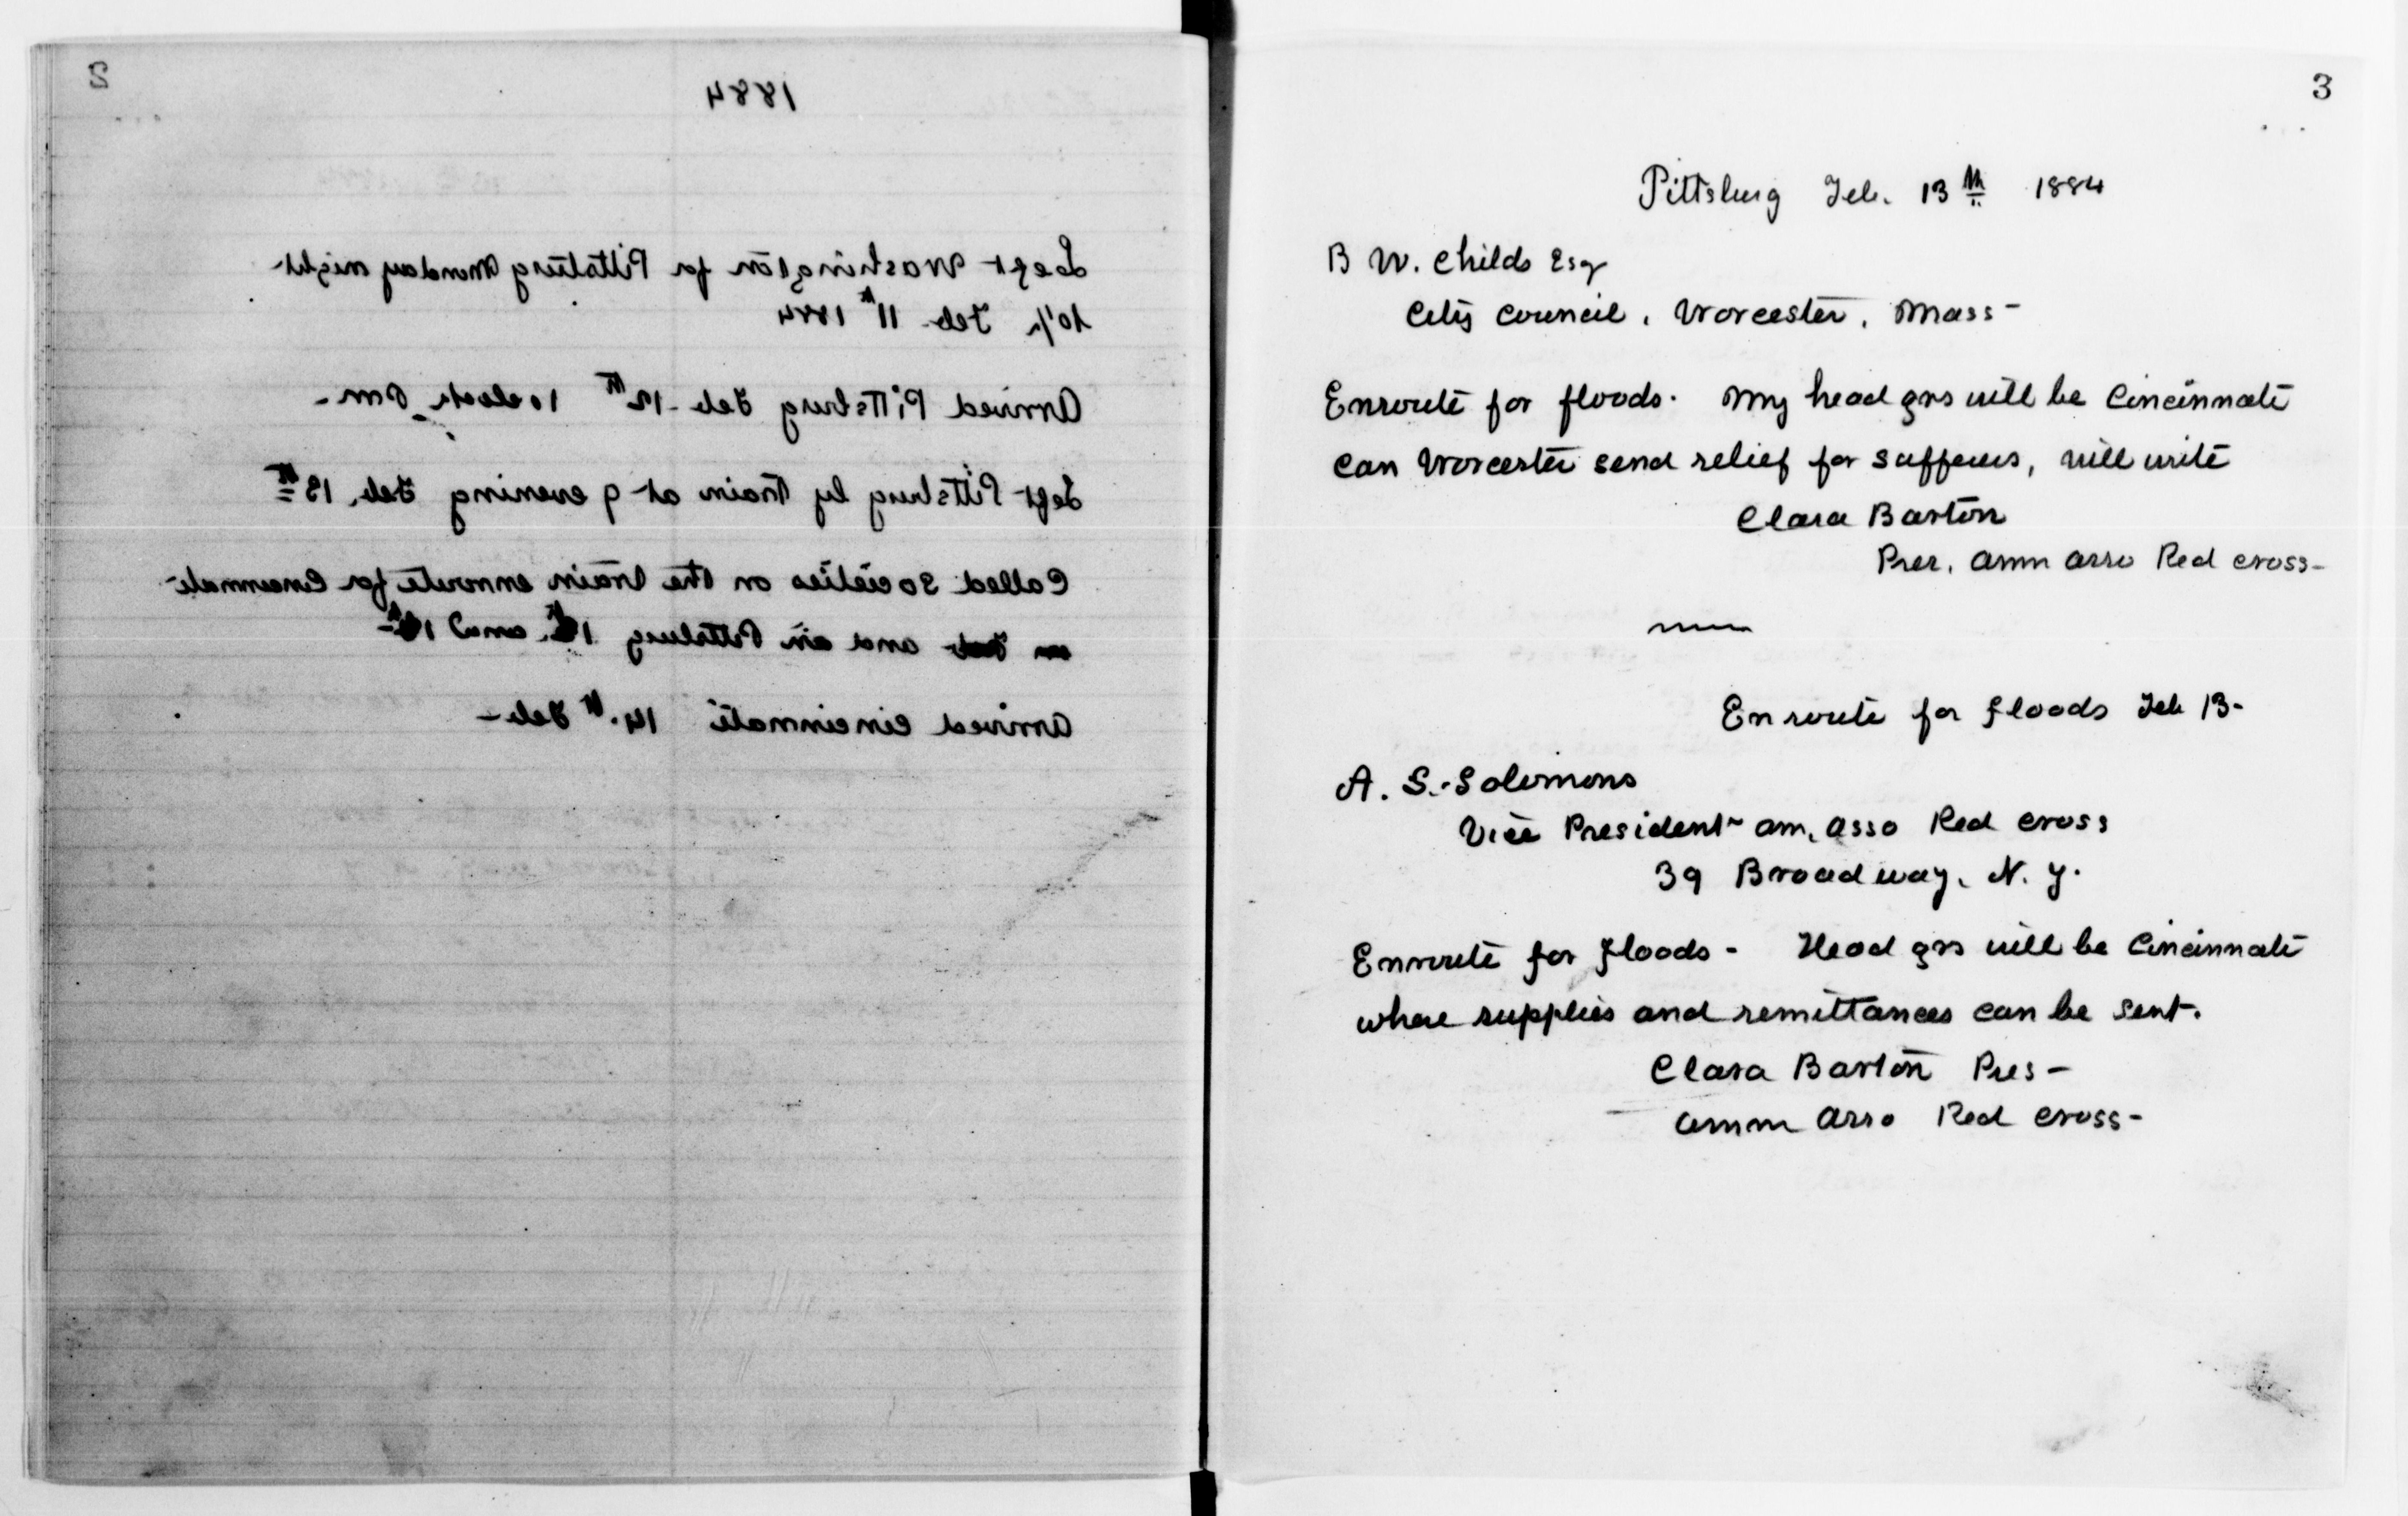 2
1884
Left Washington for Pittsburg Monday night
10 1/2 Feb 11th 1884
Arrived Pittsburg Feb 12th 10 clock, Am -
Left Pittsburg by train at 9 evening Feb. 13th
Called Societies on the train enroute for Cincinnati
and in Pittsburg and
Arrived Cincinnati 14.th Feb -
3
Pittsburg Feb. 13th 1884
B W. Childs Esq
City Council, Worcester, Mass -
Enroute for floods. My head qrs will be Cincinnati
Can Worcester send relief for sufferers, will write
Clara Barton
Pres. Amn Asso Red Cross -
En route for floods Feb 13 -
A. S. Solomons
Vice President Am. Asso Red Cross
39 Broadway, N. Y.
Enroute for floods - Head qrs will be Cincinnati
where supplies and remittances can be sent.
Clara Barton Pres -
Amn Asso Red Cross -